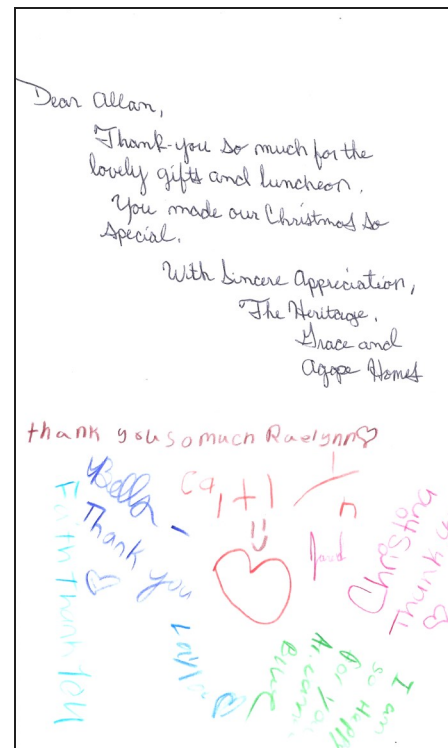 Dear Allan,
Thank-you so much for the
lovely gifts and luncheon.
You made our Christmas so
special.
With Sincere Appreciation,
The Heritage,
Grace and
Agape Homes
thank you so much Raelynn
Bella -
Thank you
Faith Thank You
Christina
Thank u
I am
so Happy
for you